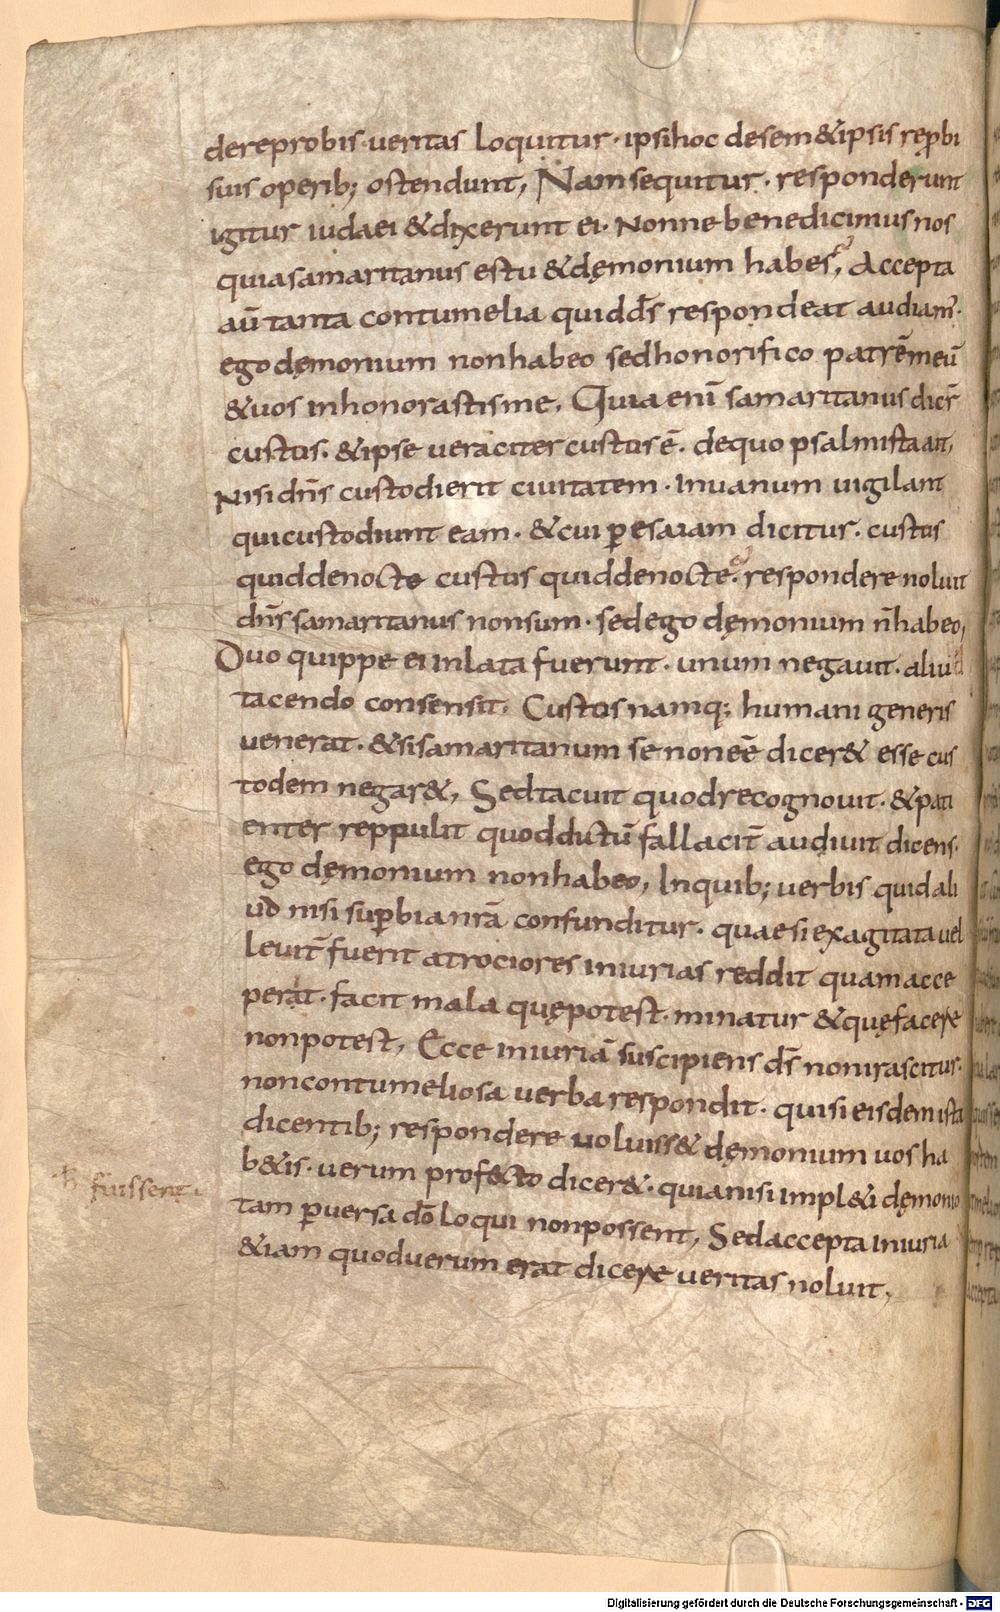 dereprobis· veritas loquitur· ipsi hoc desem& ipsis rep̱bi
suis operib; ostendunt, Nam sequitur· responderunt
igitur iudaei &dixerunt ei· Nonne benedicimus nos
quia samaritanus es tu &dęmonium habes, Accepta
aū tanta contumelia quid d̄s respondeat audiam᾿·
ego dęmonium non habeo sed honorifico patrē meū
&uos inhonorastis me, Quia enī samaritanus dicr̄
custos· &ipse ueraciter custos ē· de quo psalmista ait,
Nisi dn̄s custodierit ciuitatem· inuanum uigilant
qui custodiunt eam· &cui ꝑ esaiam dicitur· custos
quid denocte custos quid denocte· respondere noluit
dn̄s samaritanus non sum· sed ego dęmonium n̄ habeo,
Duo quippe ei inlata fuerunt· unum negauit· aliud
tacendo consensit, Custos namq; humani generis
uenerat· &si samaritanum se non eē dicer& esse cus
todem negar&, Sed tacuit quod recognouit· &pati
enter reppulit quod dictū fallacit̄ audiuit dicens·
ego dęmonium non habeo, Inquib; uerbis quid ali
ud nisi suꝑbia nr̄a confunditur· quae si exagitata uel
leuit̄ fuerit atrociores iniurias reddit quam acce
perat· facit mala quę potest· minatur &quę facere
non potest, Ecce iniuriā suscipiens d̄s non irascitur·
non contumeliosa uerba respondit· qui si eisdem ista
dicentib; respondere uoluiss& dęmonium uos ha
b&is· uerum profecto dicer&· quia nisi impl&i dęmonio
tam ꝑuersa dō loqui non possent, Sed accepta iniuria
&iam quod uerum erat dicere ueritas noluit,
fuissent·
Digitalisierung gefördert durch die Deutsche Forschungsgemeinschaft - DFG